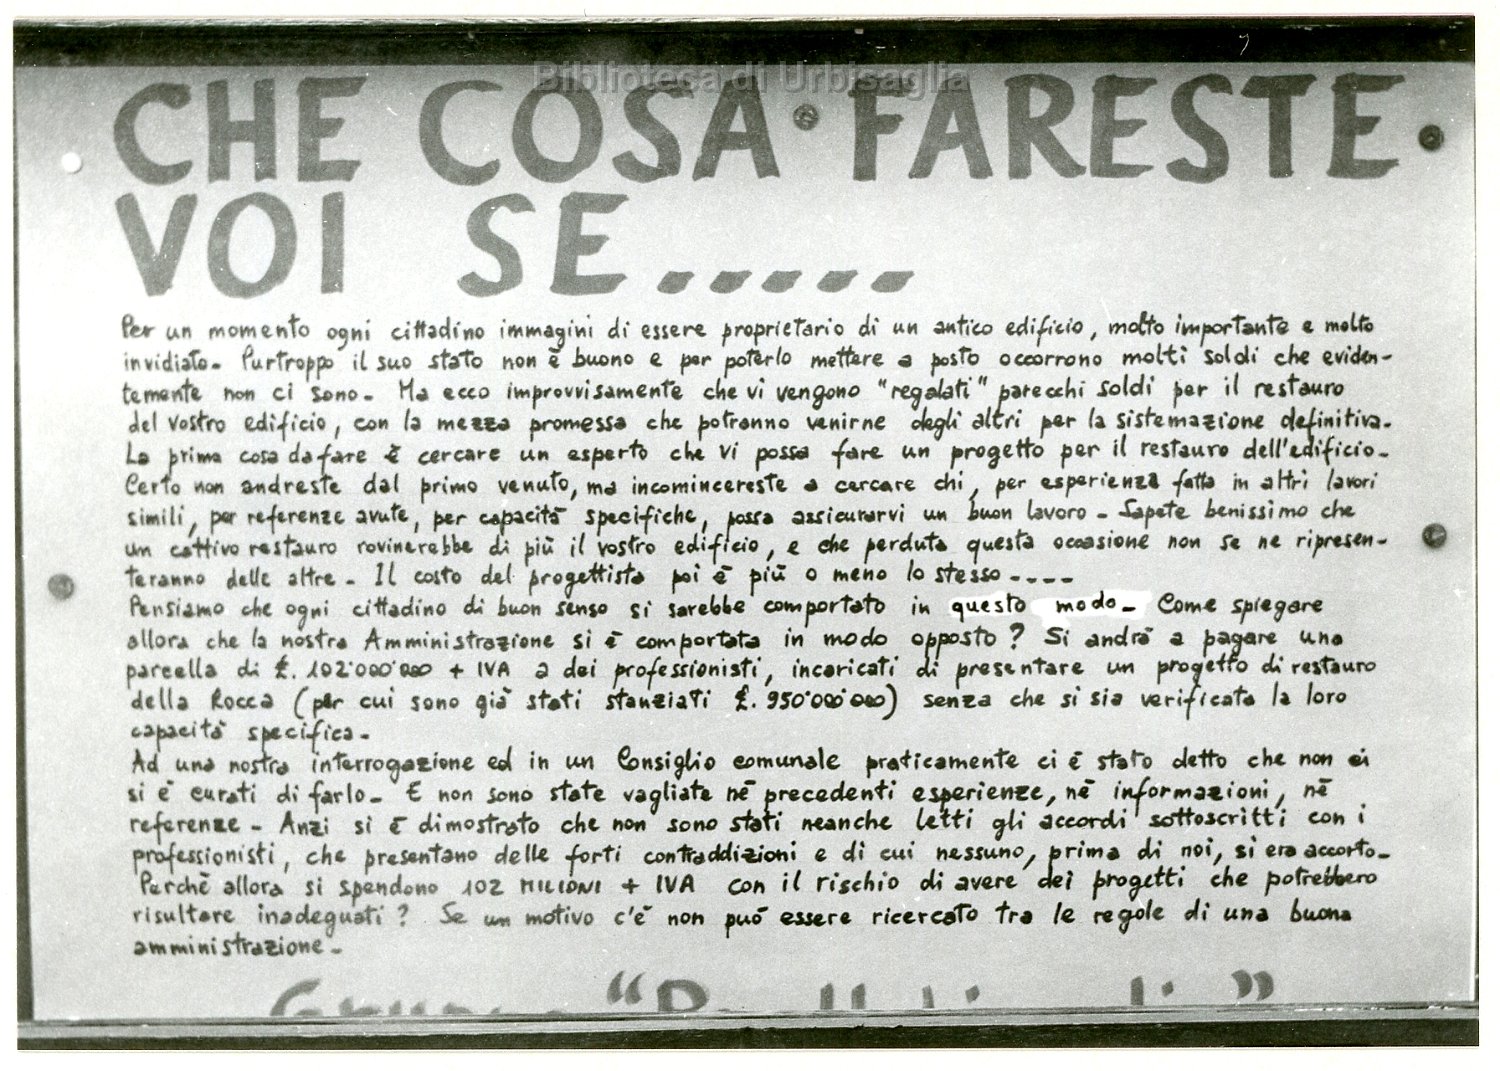 Biblioteca di Urbisaglia
CHE COSA FARESTE
VOI SE.....
Per un momento ogni cittadino immagini di essere proprietario di un antico edificio, molto importante e molto
invidiato. Purtroppo il suo stato non è buono e per poterlo mettere a posto occorrono molti soldi che eviden-
temente non ci sono. Ma ecco improvvisamente che vi vengono "regalati" parecchi soldi per il restauro
del vostro edificio, con la mezza promessa che potranno venirne degli altri per la sistemazione definitiva.
La prima cosa da fare è cercare un esperto che vi possa fare un progetto per il restauro dell'edificio.
Certo non andreste dal primo venuto, ma incomincereste a cercare chi, per esperienza fatta in altri lavori
simili, per referenze avute, per capacità specifiche, possa assicurarvi un buon lavoro. Sapete benissimo che
un cattivo restauro rovinerebbe di più il vostro edificio, e che perduta questa occasione non se ne ripresen-
teranno delle altre. Il costo del progettista poi è più o meno lo stesso....
Pensiamo che ogni cittadino di buon senso si sarebbe comportato in questo modo. Come spiegare
allora che la nostra Amministrazione si è comportata in modo opposto? Si andrà a pagare una
parcella di £. 102'000'000 + IVA a dei professionisti, incaricati di presentare un progetto di restauro
della Rocca (per cui sono già stati stanziati £. 950'000'000) senza che si sia verificata la loro
capacità specifica.
Ad una nostra interrogazione ed in un Consiglio comunale praticamente ci è stato detto che non ci
si è curati di farlo. E non sono state vagliate nè precedenti esperienze, nè informazioni, nè
referenze. Anzi si è dimostrato che non sono stati neanche letti gli accordi sottoscritti con i
professionisti, che presentano delle forti contraddizioni e di cui nessuno, prima di noi, si era accorto.
Perchè allora si spendono 102 MILIONI + IVA con il rischio di avere dei progetti che potrebbero
risultare inadeguati? Se un motivo c'è non può essere ricercato tra le regole di una buona
amministrazione.